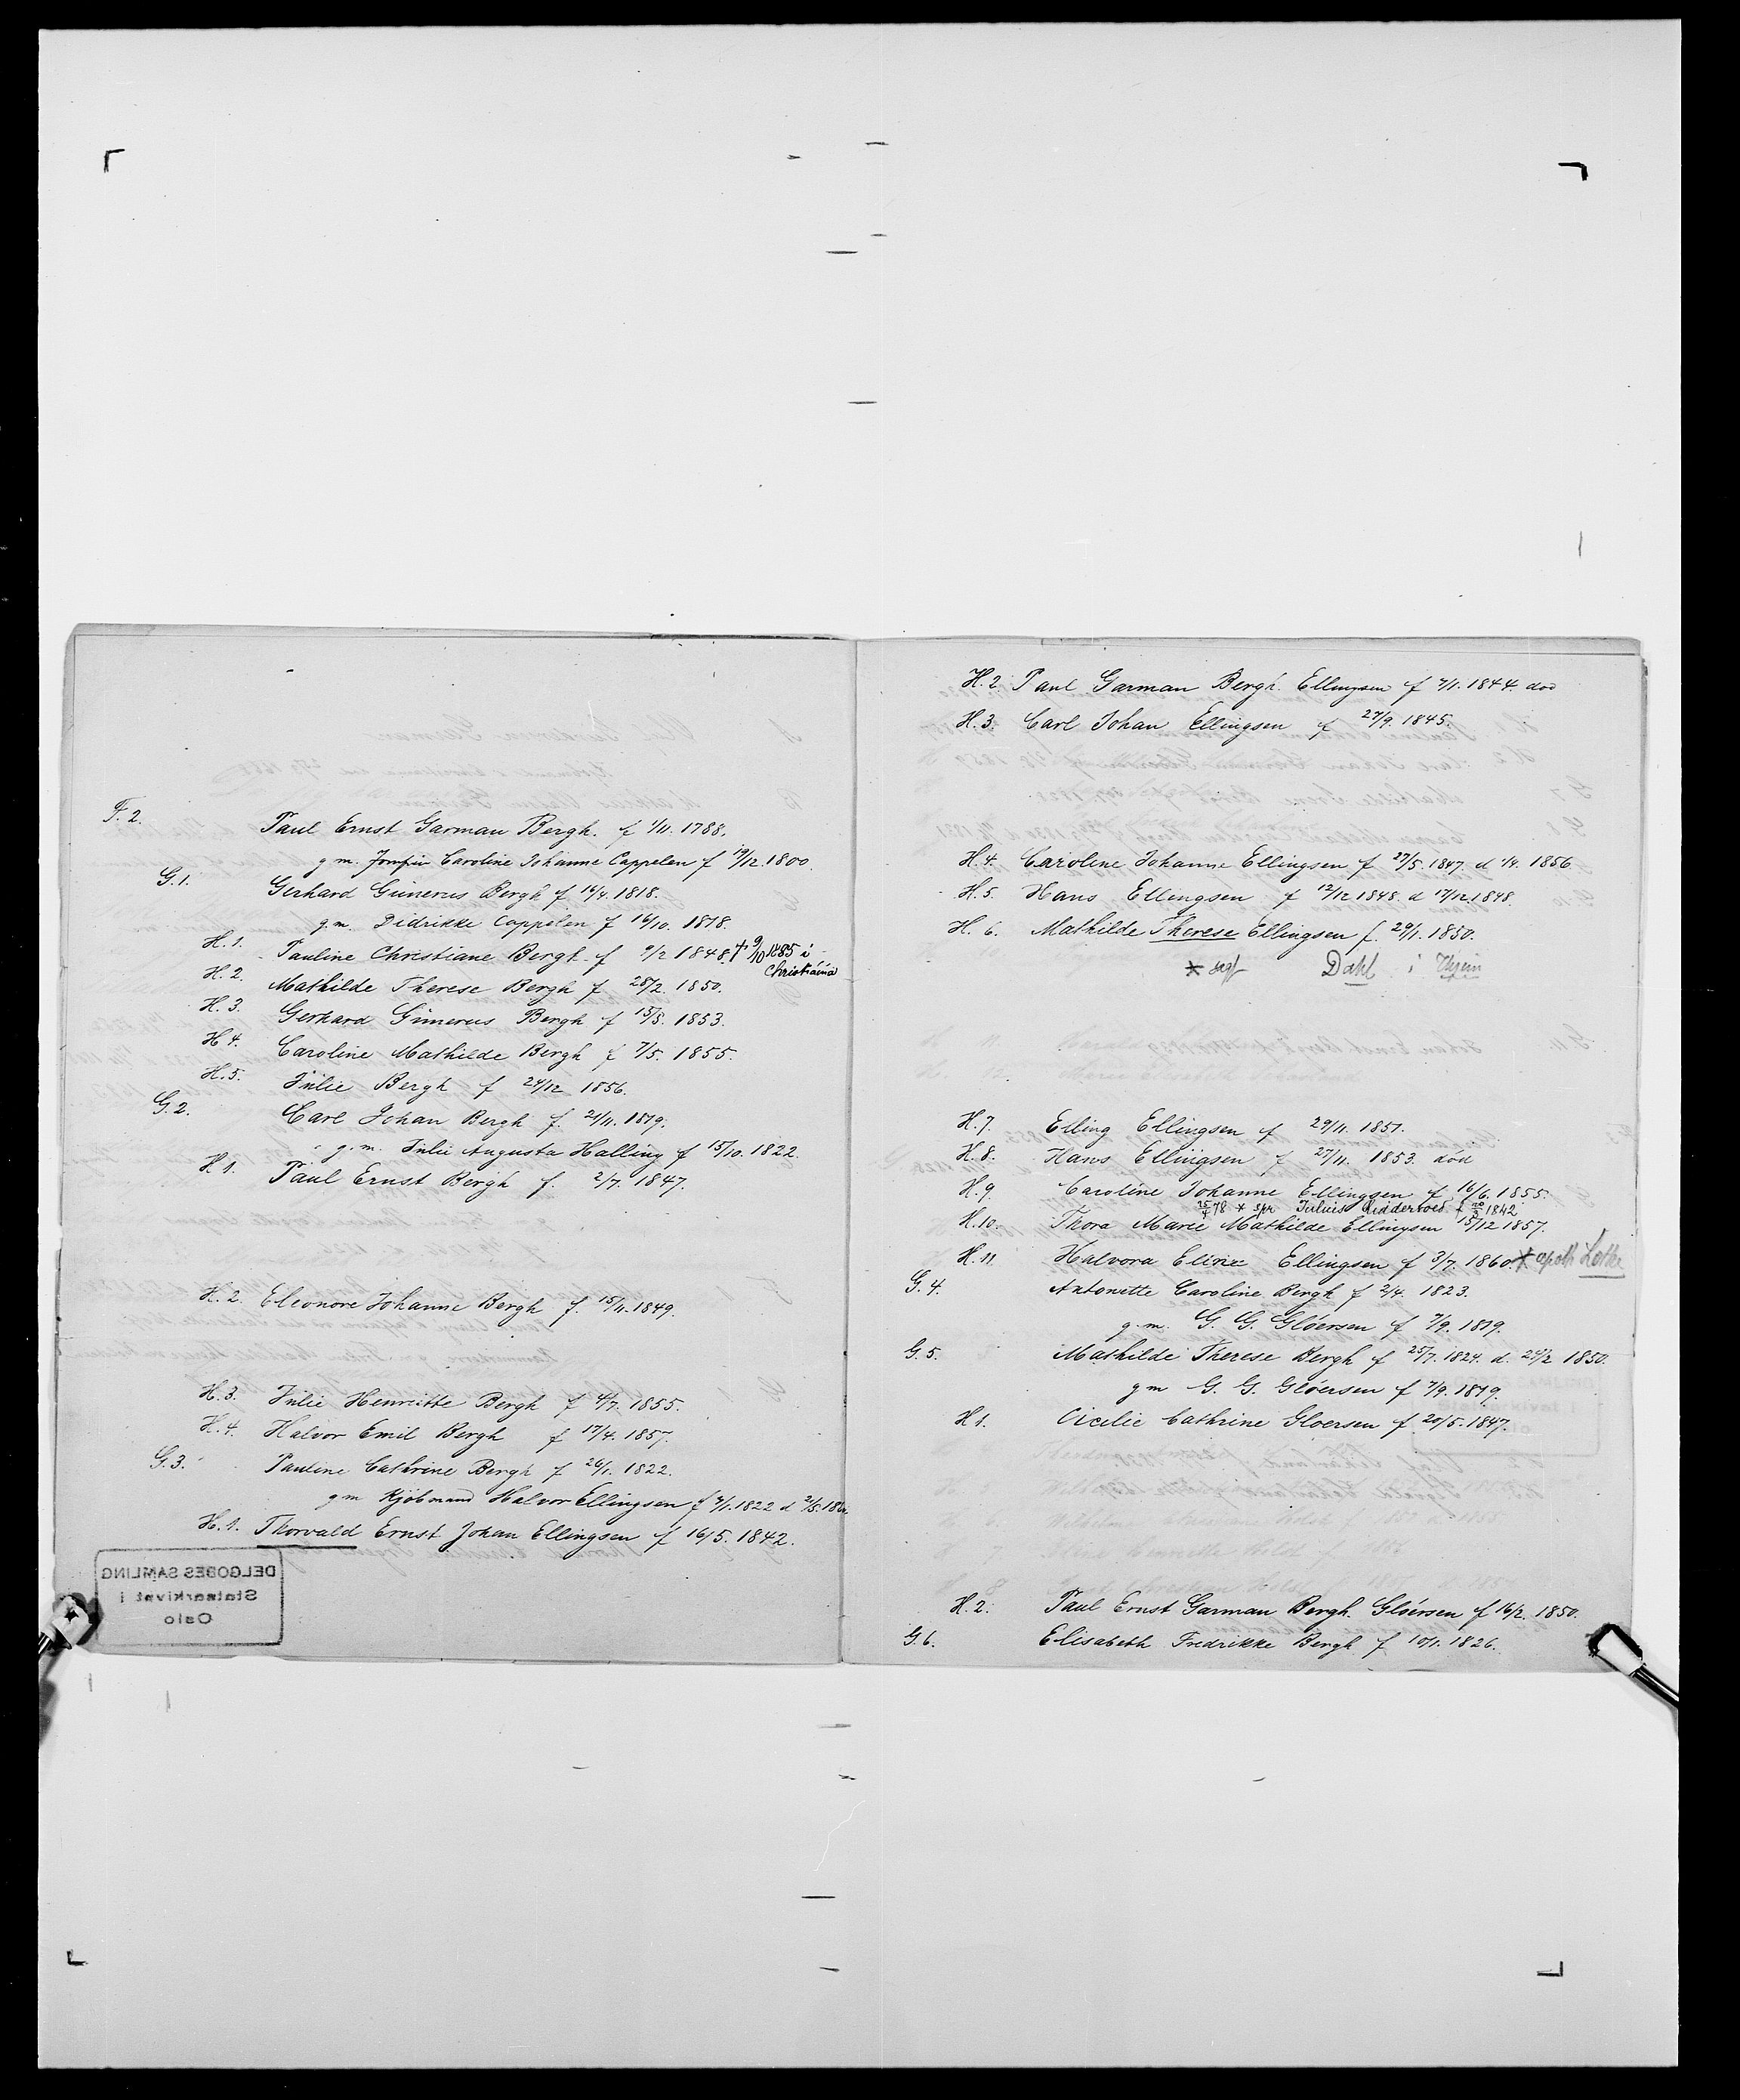 F. 2. Paul Ernst Garman Bergh. f 1/11. 1788.
g.m. Jomfru Caroline Johanne Cappelen f 19/12. 1800.
G. 1. Gerhard Günerus Bergh f 16/4. 1818.
g.m. Didrikke Cappelen f 16/10. 1818.
H. 1. Pauline Christiane Bergh f 9/2 1848. † 9/10 1885 i
Christiania
H. 2. Mathilde Therese Bergh f 28/2. 1850.
H. 3. Gerhard Günerus Bergh f 15/8. 1853.
H. 4. Caroline Mathilde Bergh f 7/5. 1855.
H. 5. Julie Bergh f 24/12 1856.
G. 2. Carl Johan Bergh f. 21/11. 1819.
g.m. Julie Augusta Halling f 15/10. 1822.
H. 1. Paul Ernst Bergh f. 2/7. 1847.
H. 2. Eleonore Johanne Bergh f. 15/11. 1849.
H. 3. Julie Henriette Bergh f 4/7. 1855.
H. 4. Halvor Emil Bergh f 17/4. 1857.
G. 3. Pauline Cathrine Bergh f 26/1. 1822.
g m Kjöbmand Halvor Ellingsen f 4/1. 1822 d
H. 1. Thorvald Ernst Johan Ellingsen f 16/5. 1842.
DELGOBES SAMLING
Statsarkivet i
Oslo
H. 2 Paul Garman Bergh. Ellingsen f 4/1. 1844. död
H. 3. Carl Johan Ellingsen f 27/9. 1845.
H. 4. Caroline Johanne Ellingsen f 27/5. 1847. d 1/4. 1856
H. 5. Hans Ellingsen f 12/12 1848. d 17/12 1848.
H. 6. Mathilde Therese Ellingsen f. 29/1. 1850.
* sagf Dahl i Thjem
H. 7. Elling Ellingsen f 29/11. 1851.
H. 8. Hans Ellingsen f 27/11. 1853. död
H. 9. Caroline Johanne Ellingsen f 16/6. 1855.
15/7 78 * spr Julius Riddervold f 20/3 1842
H. 10. Thora Marie Mathilde Ellingsen 15/12 1857.
H. 11. Halvora Eline Ellingsen f 3/7. 1860. * apoth Lothe
G. 4. Antonette Caroline Bergh f 2/4. 1823.
g.m. G. G. Glöersen f 7/9. 1819.
G. 5. Mathilde Therese Bergh f 25/7. 1824. d. 24/2 1850.
g m G. G. Glöersen f 7/9. 1819.
H. 1. Cicilie Cathrine Gloersen f 20/5. 1847.
H. 2. Paul Ernst Garman Bergh. Glöersen f 16/2. 1850.
G. 6. Elisabeth Fredrikke Bergh f 10/1. 1826.